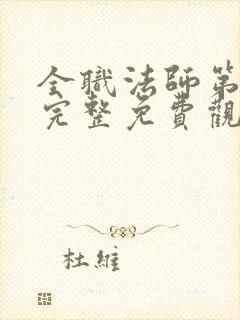 全職法師第
完整免費觀
杜維